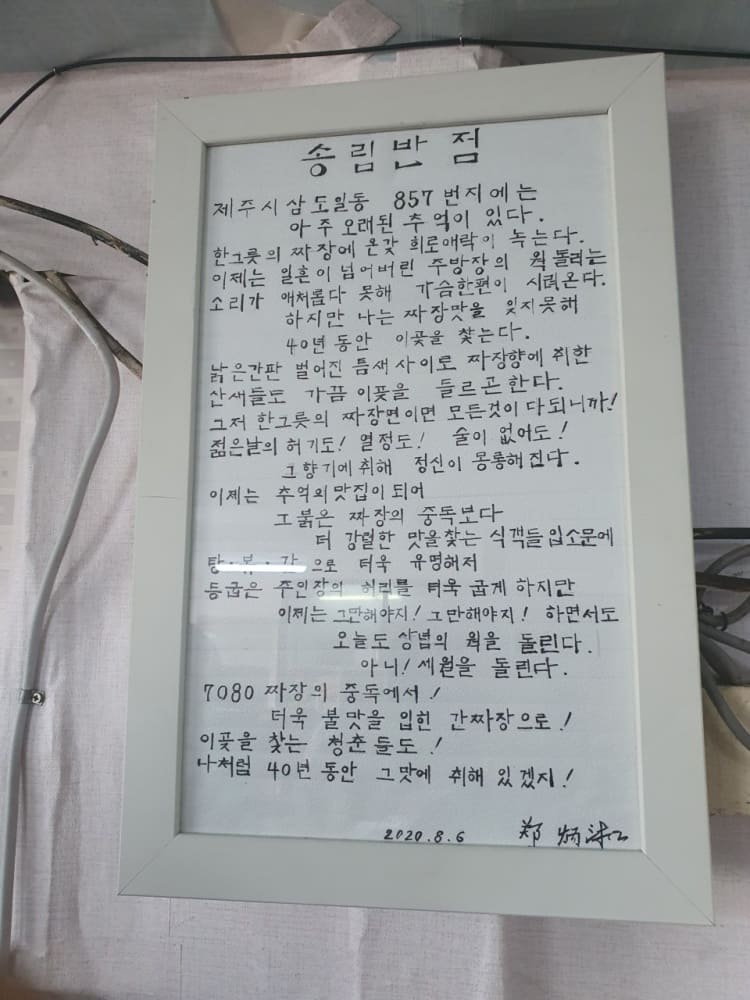 송림반점
제주시 삼도일동 857 번지에는
아주 오래된 추억이 있다.
한그릇의 짜장에 온갖 희로애락이 녹는다.
이제는 일흔이 넘어버린 주방장의 웍 돌리는
소리가 애처롭다 못해 가슴한편이 시려온다.
하지만 나는 짜장맛을 잊지못해
40년 동안 이곳을 찾는다.
낡은간판 벌어진 틈새 사이로 짜장향에 취한
산새들도 가끔 이곳을 들르곤한다.
그저 한그릇의 짜장면이면 모든것이 다되니까!
젊은날의 허기도! 열정도! 술이 없어도!
그향기에 취해 정신이 몽롱해진다.
이제는 추억의 맛집이 되어
그 붉은 짜장의 중독보다
더 강렬한 맛을 찾는 식객들 입소문에
탕·볶·간 으로 더욱 유명해저
등굽은 주인장의 허리를 더욱 굽게 하지만
이제는 그만해야지! 그만해야지! 하면서도
오늘도 상념의 웍을 돌린다.
아니! 세월을 돌린다.
7080 짜장의 중독에서!
더욱 불맛을 입힌 간짜장으로!
이곳을 찾는 청춘들도!
나처럼 40년 동안 그맛에 취해 있겠지!
2020.8.6 鄭 炳